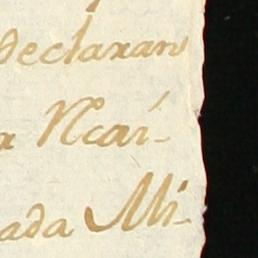 Declaran
Ncai-
ada Mi-